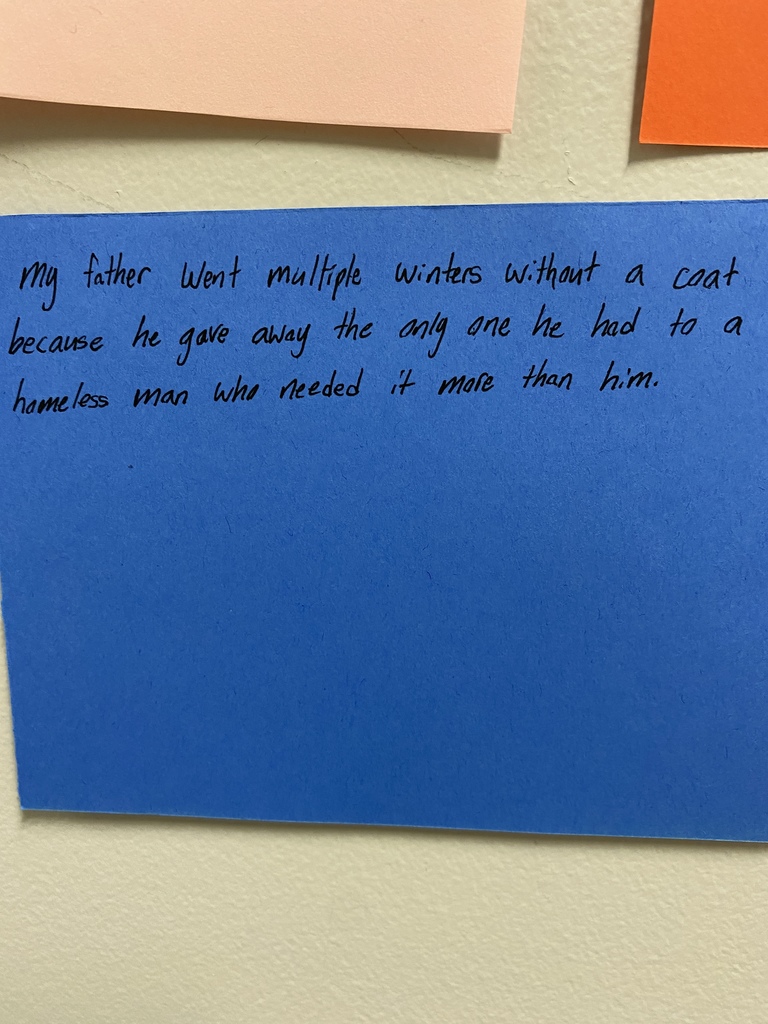 My father went multiple winters without a coat
because he gave away the only one he had to a
homeless man who needed it more than him.